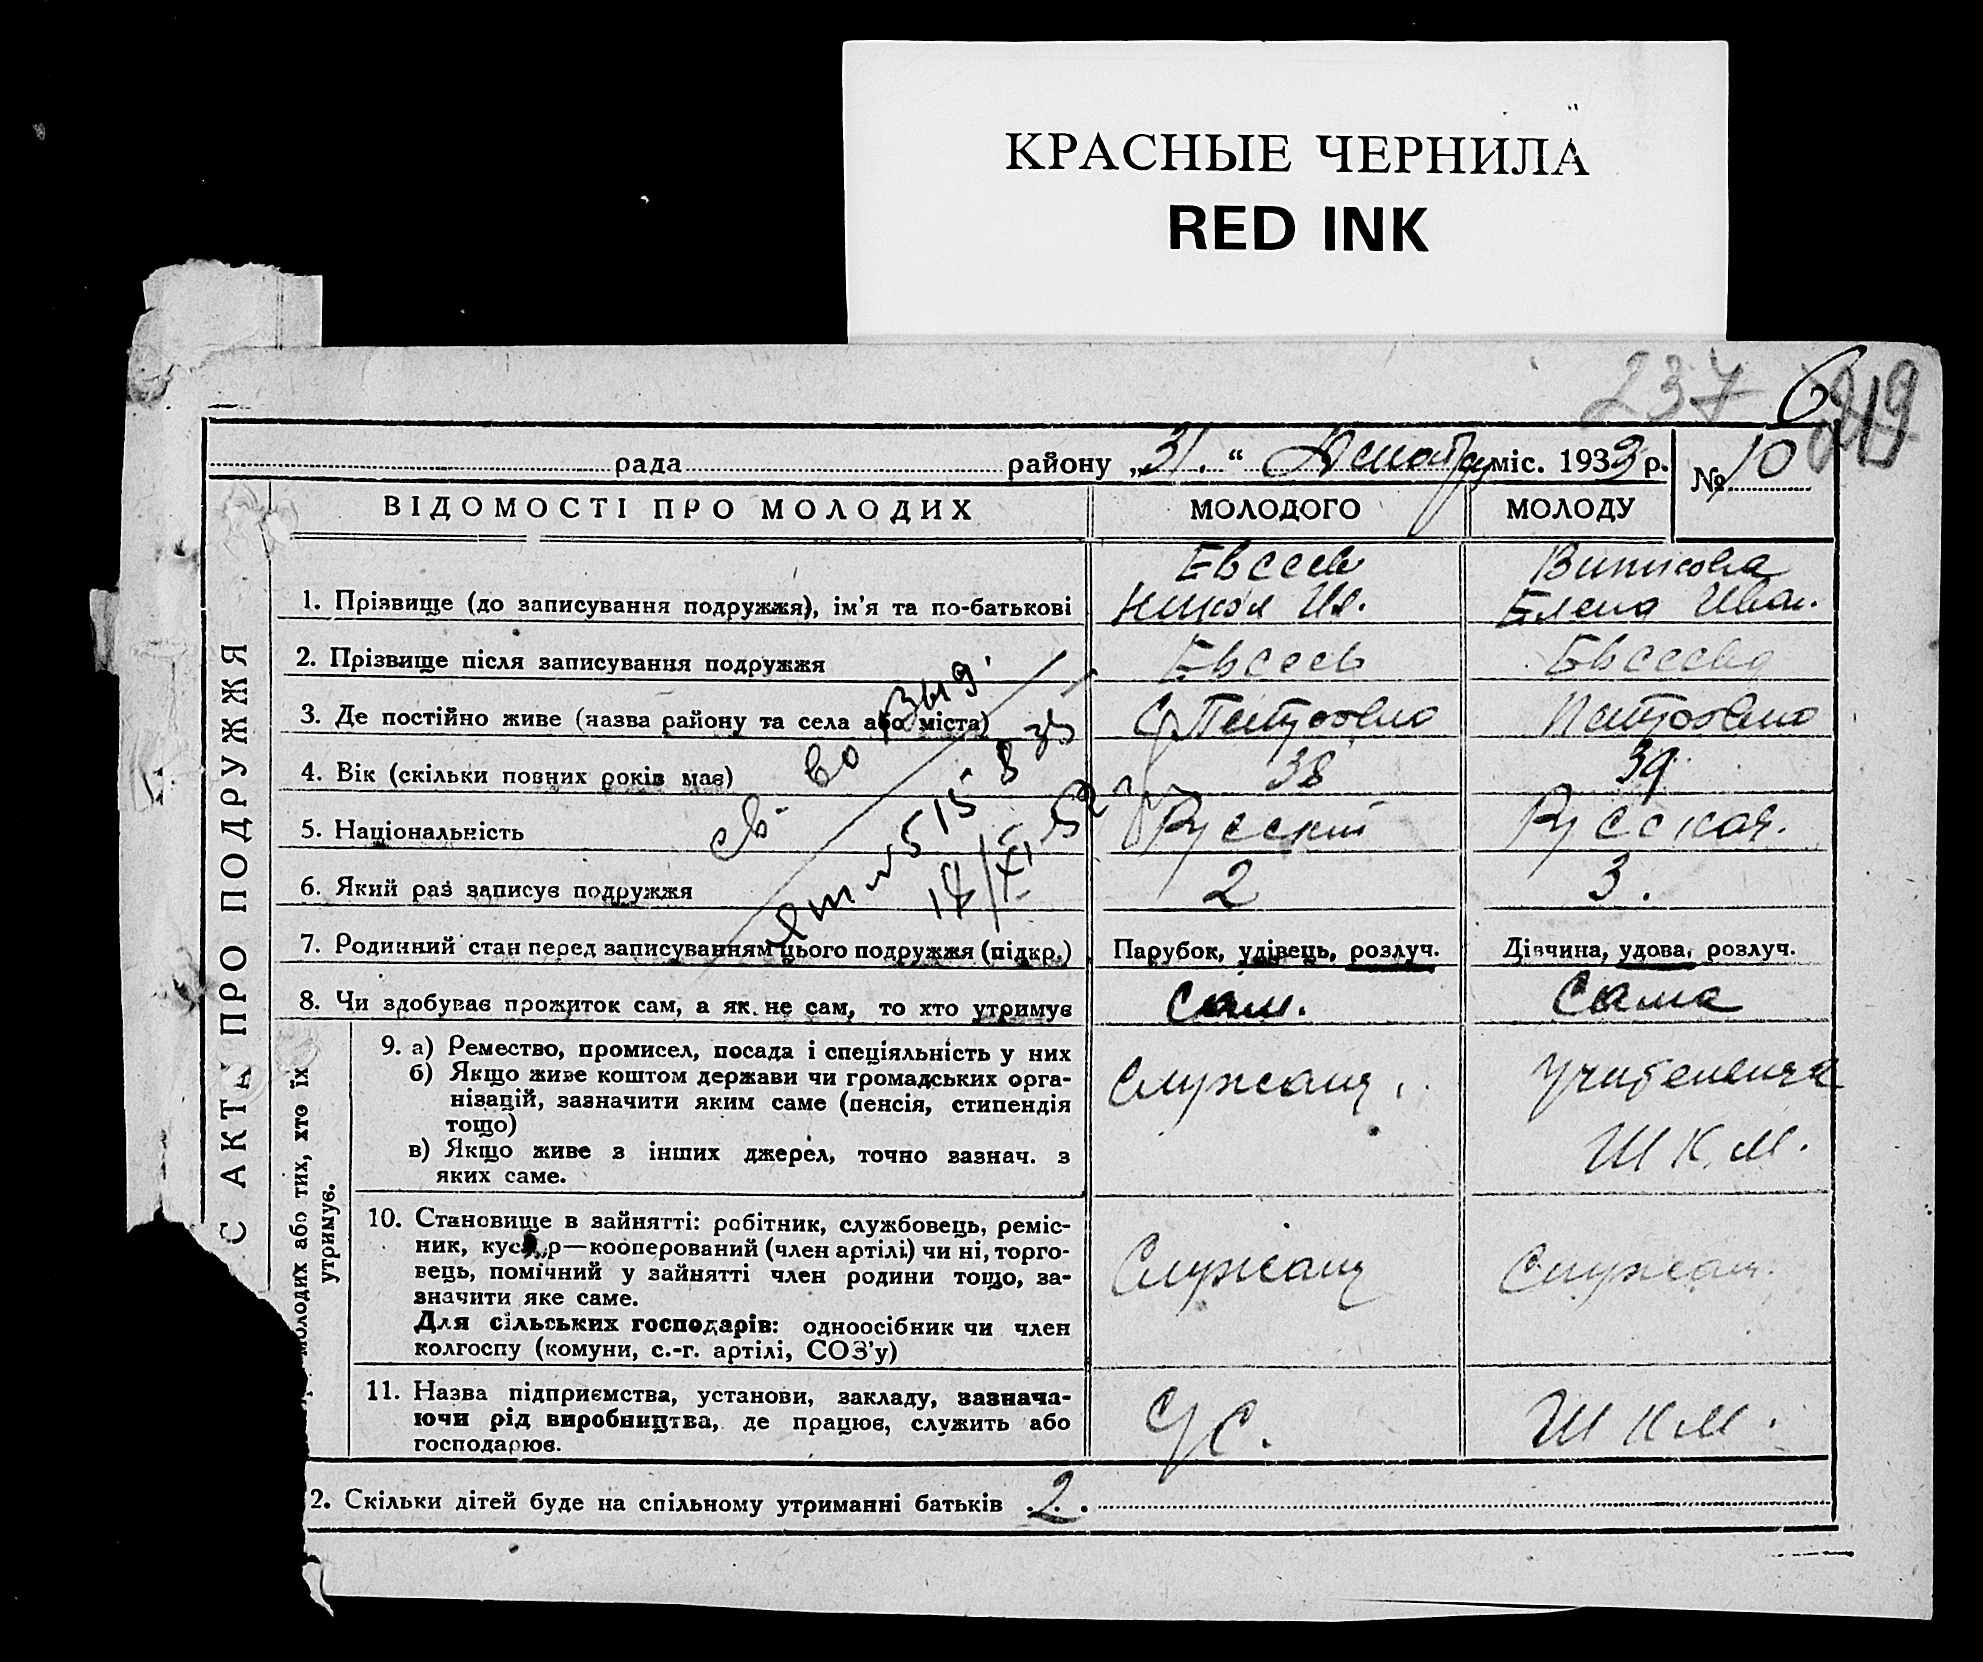 КРАСНЫЕ ЧЕРНИЛА
RED INK
237
рада районну „31.“ міс. 1933 р. № 10
ВІДОМОСТІ ПРО МОЛОДИХ МОЛОДОГО МОЛОДУ
С АКТА ПРО ПОДРУЖЖЯ
Евсеев
1. Прізвище (до записування подружжя), ім'я та по-батькові Елена Иван.
2. Прізвище після записування подружжя Евсеев Евсеева
3. Де постійно живе (назва району та села або міста) с Петровка Петровка
4. Вік (скільки повних років має) 38 39
5. Національність Русский Русская.
6. Який раз записує подружжя 2 3.
7. Родинний стан перед записуванням цього подружжя (підкр.) Парубок, удівець, розлуч. Дівчина, удова, розлуч.
8. Чи здобував прожиток сам, а як не сам, то хто утримує Сам. Сама
молодих або тих, хто їх
утримує.
9. а) Ремество, промисел, посада і спеціяльність у них Служащ. Учителница
б) Якщо живе коштом держави чи громадських орга-
нізацій, зазначити яким саме (пенсія, стипендія
тощо) Ш К. М.
в) Якщо живе з інших джерел, точно зазнач. з
яких саме.
10. Становище в зайнятті: робітник, службовець, реміс-
ник, кустар—кооперований (член артілі) чи ні, торго-
вець, помічний у зайнятті член родини тощо, за- Служащ Служащ.
значити яке саме.
Для сільських господарів: одноосібник чи член
колгоспу (комуни, с.-г. артілі, СОЗ'у)
11. Назва підприємства, установи, закладу, зазнача-
ючи рід виробництва, де працює, служить або С/С. Ш К М.
господарює.
2. Скільки дітей буде на спільному утриманні батьків 2.